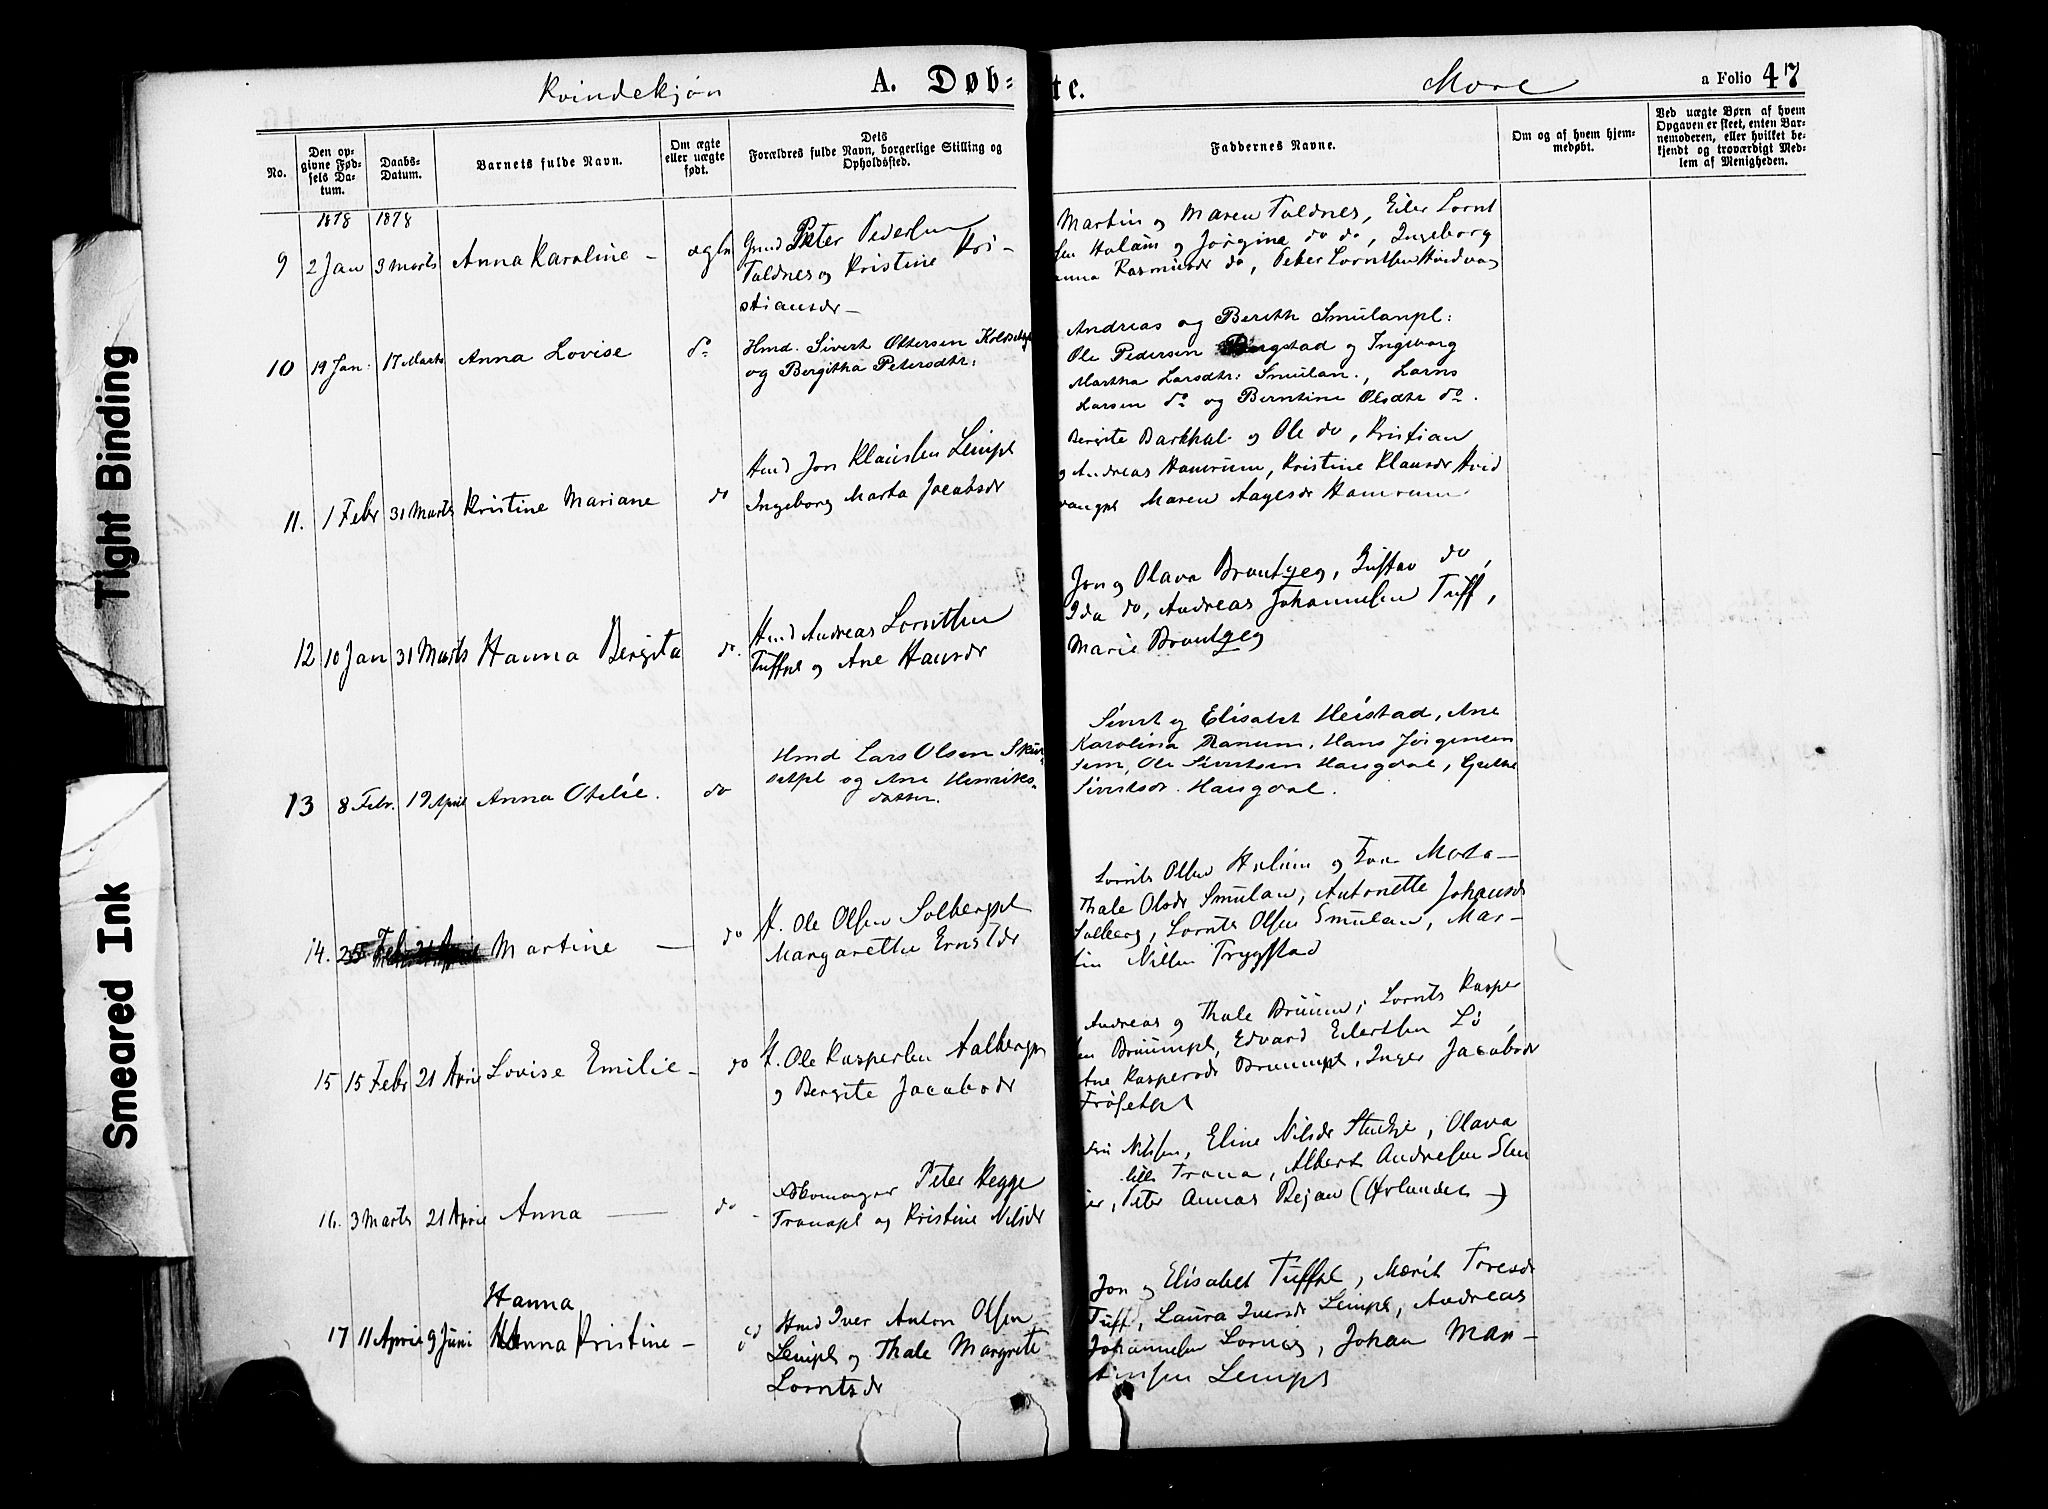 Kvindekjön A. Døb= te. More a Folio 47
No.
Den opgivne Fødsels Datum.
Daabs-Datum.
Barnets fulde Navn.
Om ægte eller uægte født.
Dets Forældres fulde Navn, borgerlige Stilling og Opholdssted.
Faddernes Navne.
Om og af hvem hjemmedøbt.
Ved uægte Børn af hvem Opgaven er skeet, enten Barnemoderen, eller hvilket bekjendt og troværdigt Medlem af Menigheden.
1878 1878
9 2 Jan 3 Marts Anna Karoline —
Gmd Peter Pedersen
Taldnes og Kristine Kri-
stiansdr —
Martin og Maren Taldnes, Eiler Lornt
sen Holum og Jørgine do do, Ingeborg
anna Rasmusdr do, Peter Lorntsen
10 19 Jan: 17 Marts Anna Lovise do
Hmd. Sivert Ottersen
og Bergitha Petersdtr:
Andreas og Bereth Smulanpl:
Ole Pedersen Bergstad og Ingeborg
Martha Larsdtr: Smulan., Lorns
Larsen do og Berntine Olsdtr do.
11. 1 Febr 31 Marts Kristine Mariane do
Hmd Jon Klausen Leinpl
Ingeborg Marta Jacobsdr
Bergite Barkhal og Ole do, Kristian
og Andreas Hamrum, Kristine Klausdr Hvid
vangpl Maren Aagesdr Hamrum.
12 10 Jan 31 Marts Hanna Bergita do.
Hmd Andreas Lorntsen
Tuftpl og Ane Hansdr
Jon og Olava Brantzeg, Gustav do,
Ida do, Andreas Johannesen Tuft,
Marie Brantzeg
13 8 Febr. 19 April Anna Otelie. do
Hmd Lars Olsen Skur-
setpl og Ane Henriks-
datter.
Sivert og Elisabet Heistad, Ane
Karolina Ranum, Hans Jørgensen
Ole Sivertsen Haugdal, Grethe
Sivertsdr. Haugdal.
14. 25 Feb 21 April Martine — do
H. Ole Olsen Solbergpl
Margarethe Ernstdr
Lornts Olsen Holum og Marta —
Thale Olsdr Smulan, Antonette Johansdr
Solberg, Lornts Olsen Smulan, Mar-
tin Nilsen Trygstad
15 15 Febr 21 April Lovise Emilie — do
H. Ole Kaspersen Aalbergpl
og Bergite Jacobsdr
Andreas og Thale Bruum, Lornts Kasper
sen Bruumpl, Edvard Eilertsen Lø,
Ane Kaspersdr Bruumpl, Inger Jacobsdr
Frøsetpl
16. 3 Marts 21 April Anna — do
Skomager Peter Hegge
Tranapl og Kristine Nilsdr
Nilsen, Eline Nilsdr Olava
Trana, Albert Andresen
Peter Annas Bejan (Ørlandet —)
17 11 April 9 Juni Hanna
Hanna Kristine —
Hmd Iver Anton Olsen
Leinpl og Thale Margrete
Lorntsdr
Jon og Elisabet Tuftpl, Marit Toresdr
Tuft, Laura Iversdr Leinpl, Andreas
Johannesen Lornes, Johan Mar-
tinsen Leinpl
Tight Binding
Smeared Ink